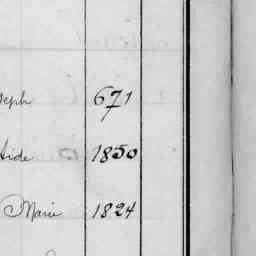 eph 671
1850
Marie 1824